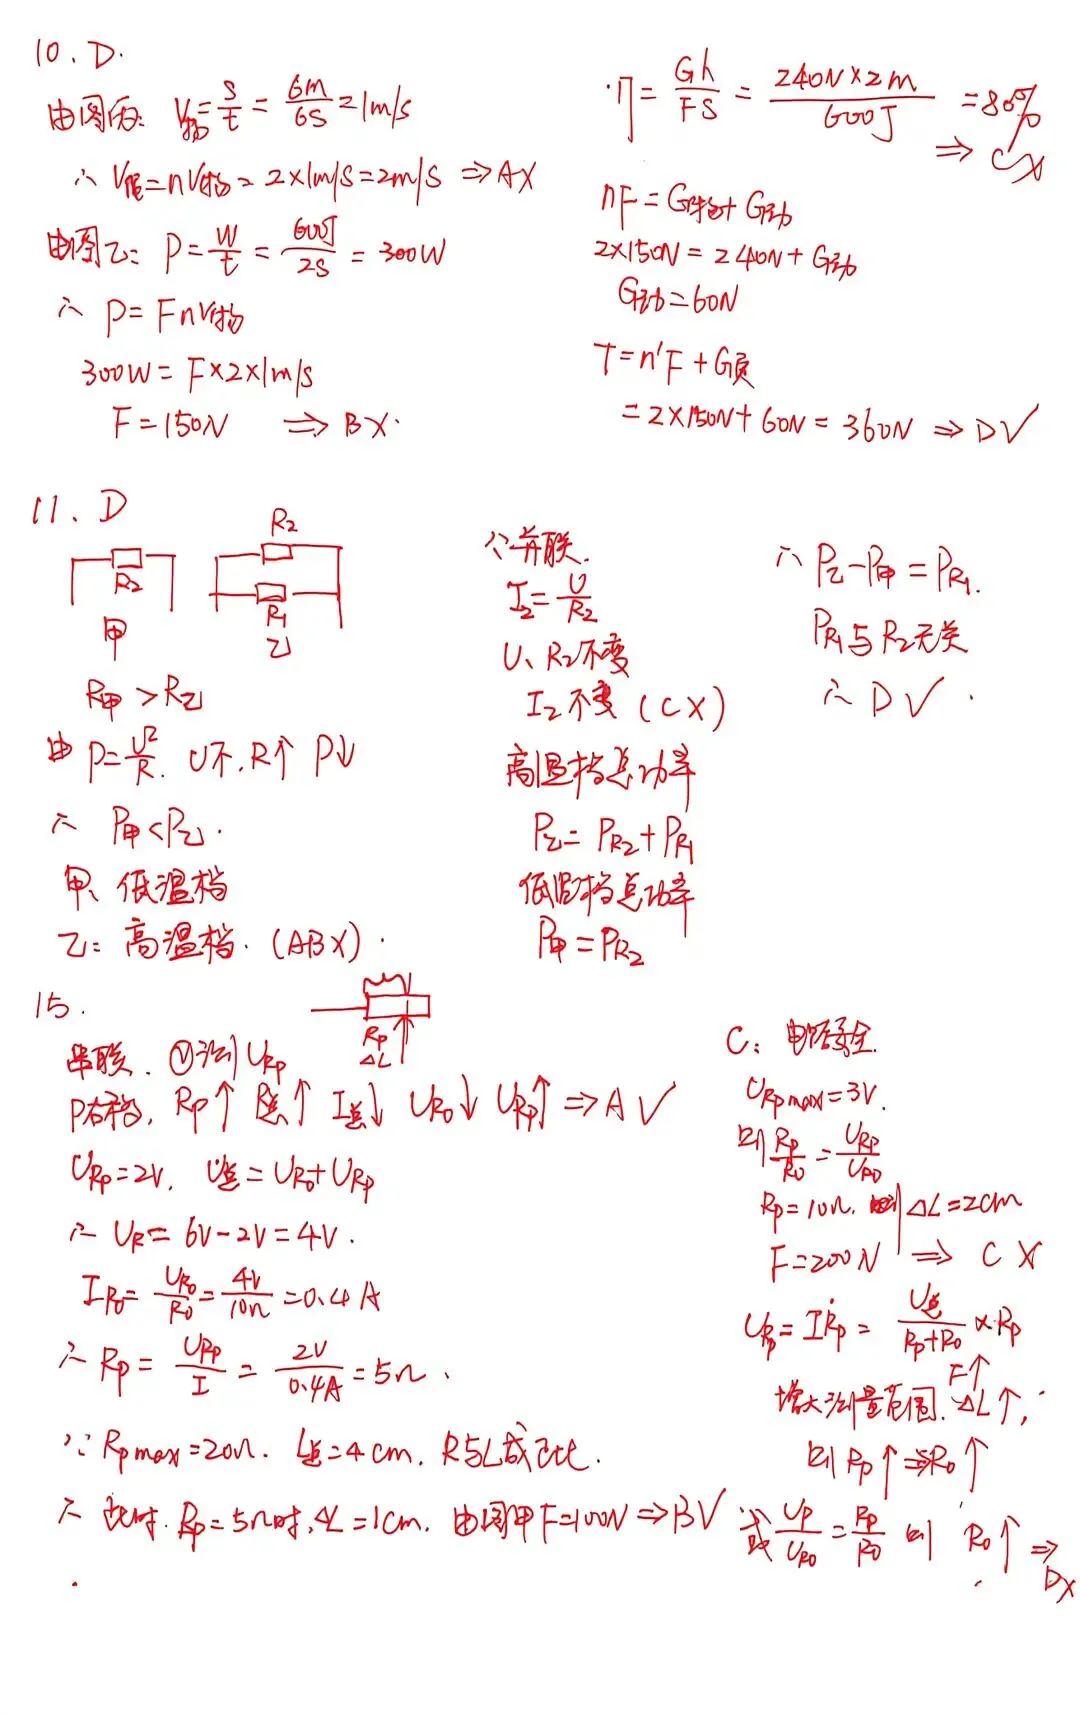 10. D.
由图丙: V物=s/t=6m/6s=1m/s
∴ V绳=nV物=2×1m/s=2m/s ⇒A×
由图乙: P=W/t=600J/2s=300W
∴ P=FnV物
300W=F×2×1m/s
F=150N ⇒B×.
·η=Gh/FS=240N×2m/600J=80%
⇒ C×
nF=G物+G动
2×150N=240N+G动
G动=60N
T=n'F+G动
=2×150N+60N=360N ⇒D√
11. D
R2
R2
R1
甲
乙
R甲>R乙
由P=U²/R. U不,R↑ P↓
∴ P甲<P乙.
甲、低温档
乙: 高温档. (AB×).
∵并联.
I2=U/R2
U、R2不变
I2不变 (C×)
高温档总功率
P乙=PR2+PR1
低温档总功率
P甲=PR2
∴ P乙-P甲=PR1.
PR1与R2无关
∴ D√.
15.
Rp
ΔL
串联. Ⓥ测URp
P右移, Rp↑ R总↑ I总↓ UR0↓ URp↑⇒A√
URp=2V, U总=UR0+URp
∴ UR=6V-2V=4V.
IR0=UR0/R0=4V/10Ω=0.4A
∴ Rp=URp/I=2V/0.4A=5Ω.
∵ Rpmax=20Ω. L总=4cm. R与L成正比.
∴ 此时. Rp=5Ω时,ΔL=1cm. 由图甲F=100N⇒B√
C: 电路安全.
URpmax=3V.
则Rp/R0=URp/UR0
Rp=10Ω. 则ΔL=2cm
F=200N ⇒ C×
URp=IRp=U总/Rp+R0×Rp
F↑
增大测量范围. ΔL↑,
则Rp↑⇒R0↑
或Up/UR0=Rp/R0 则 R0↑⇒
D×